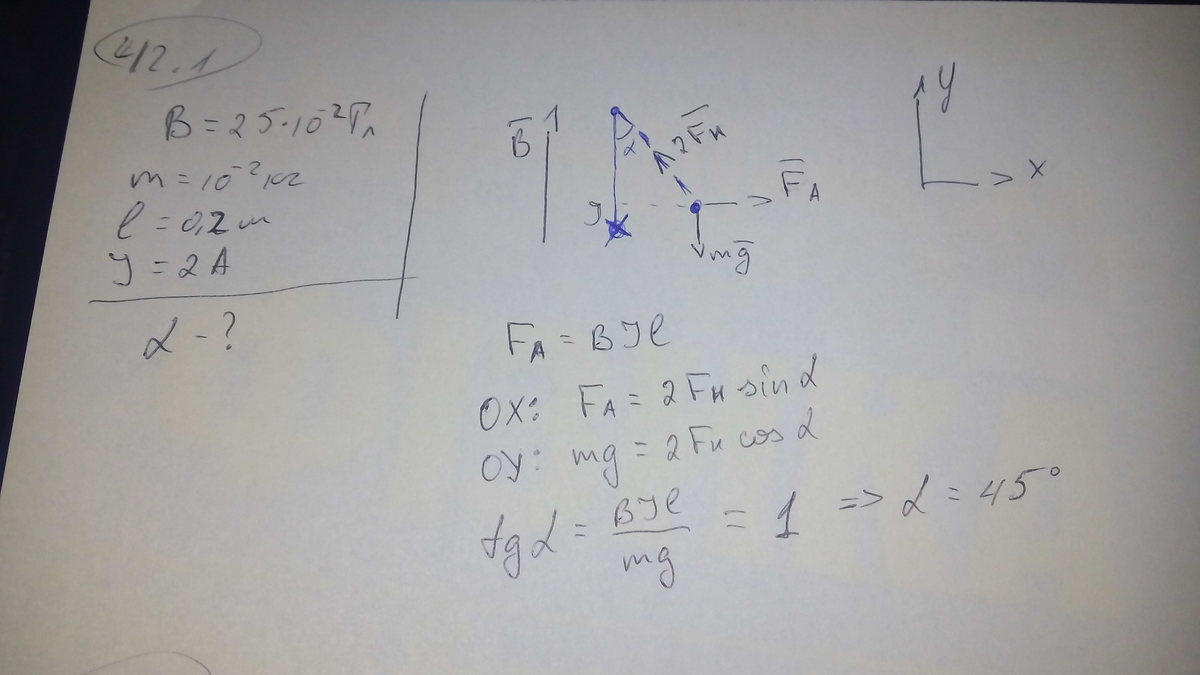 412.1
B = 25·10⁻² Тл
m = 10⁻² кг
l = 0,2 м
J = 2 A
α - ?
B̅
α
2F̅н
F̅A
J
mg̅
y
x
FA = BJl
OX: FA = 2Fн sin α
OY: mg = 2Fн cos α
tg α = BJl / mg = 1 => α = 45°